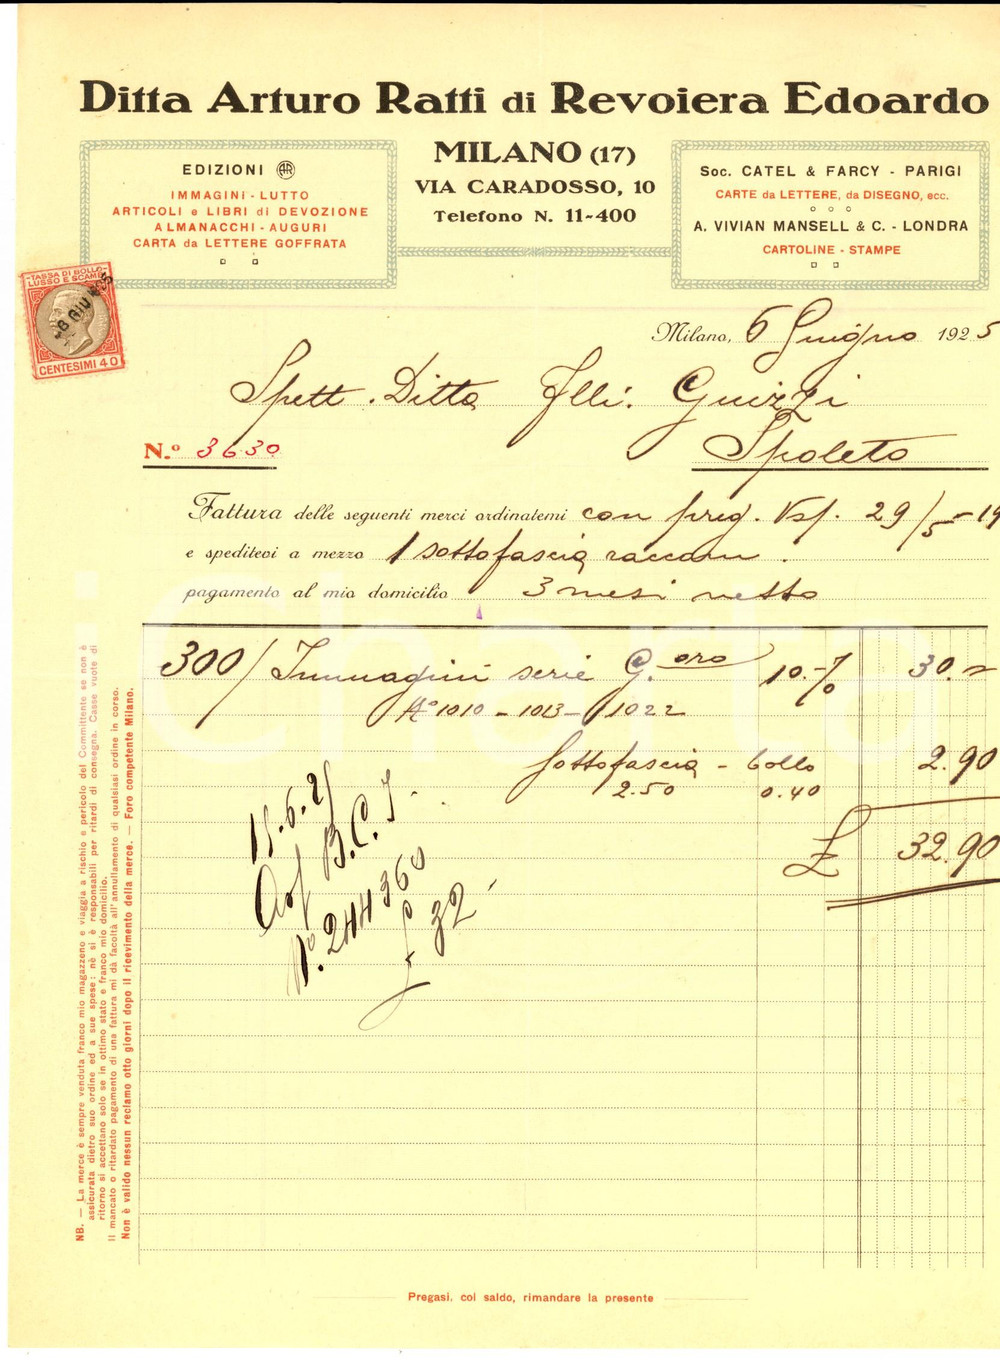 Ditta Arturo Ratti di Revoiera Edoardo
MILANO (17)
VIA CARADOSSO, 10
Telefono N. 11-400
EDIZIONI AR
IMMAGINI - LUTTO
ARTICOLI e LIBRI di DEVOZIONE
ALMANACCHI - AUGURI
CARTA da LETTERE GOFFRATA
Soc. CATEL & FARCY - PARIGI
CARTE da LETTERE, da DISEGNO, ecc.
A. VIVIAN MANSELL & C. - LONDRA
CARTOLINE - STAMPE
TASSA DI BOLLO
LUSSO E SCAMBI
-6 GIU
CENTESIMI 40
Milano, 6 Giugno 1925
Spett. Ditta Flli. Guizzi
Spoleto
N.º 3630
Fattura delle seguenti merci ordinatemi con preg. Vs/. 29/5 - 19
e speditevi a mezzo 1 sottofascia raccom.
pagamento al mio domicilio 3 mesi netto
300/ Immagini serie G. oro 10.-% 30.=
Nº 1010 - 1013 - 1022
Sottofascia - bollo 2.90
2.50 0.40
£ 32.90
15.6.25
B.C.I.
Nº. 244360
£ 32
NB. — La merce è sempre venduta franco mio magazzeno e viaggia a rischio e pericolo del Committente se non è
assicurata dietro suo ordine ed a sue spese; nè si è responsabili per ritardi di consegna. Casse vuote di
ritorno si accettano solo se in ottimo stato e franco mio domicilio.
Il mancato o ritardato pagamento di una fattura mi dà facoltà all'annullamento di qualsiasi ordine in corso.
Non è valido nessun reclamo otto giorni dopo il ricevimento della merce. — Foro competente Milano.
Pregasi, col saldo, rimandare la presente